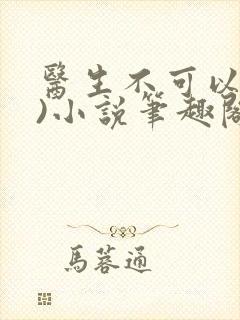 醫生不可以
)小說筆趣閣
馬蓉通